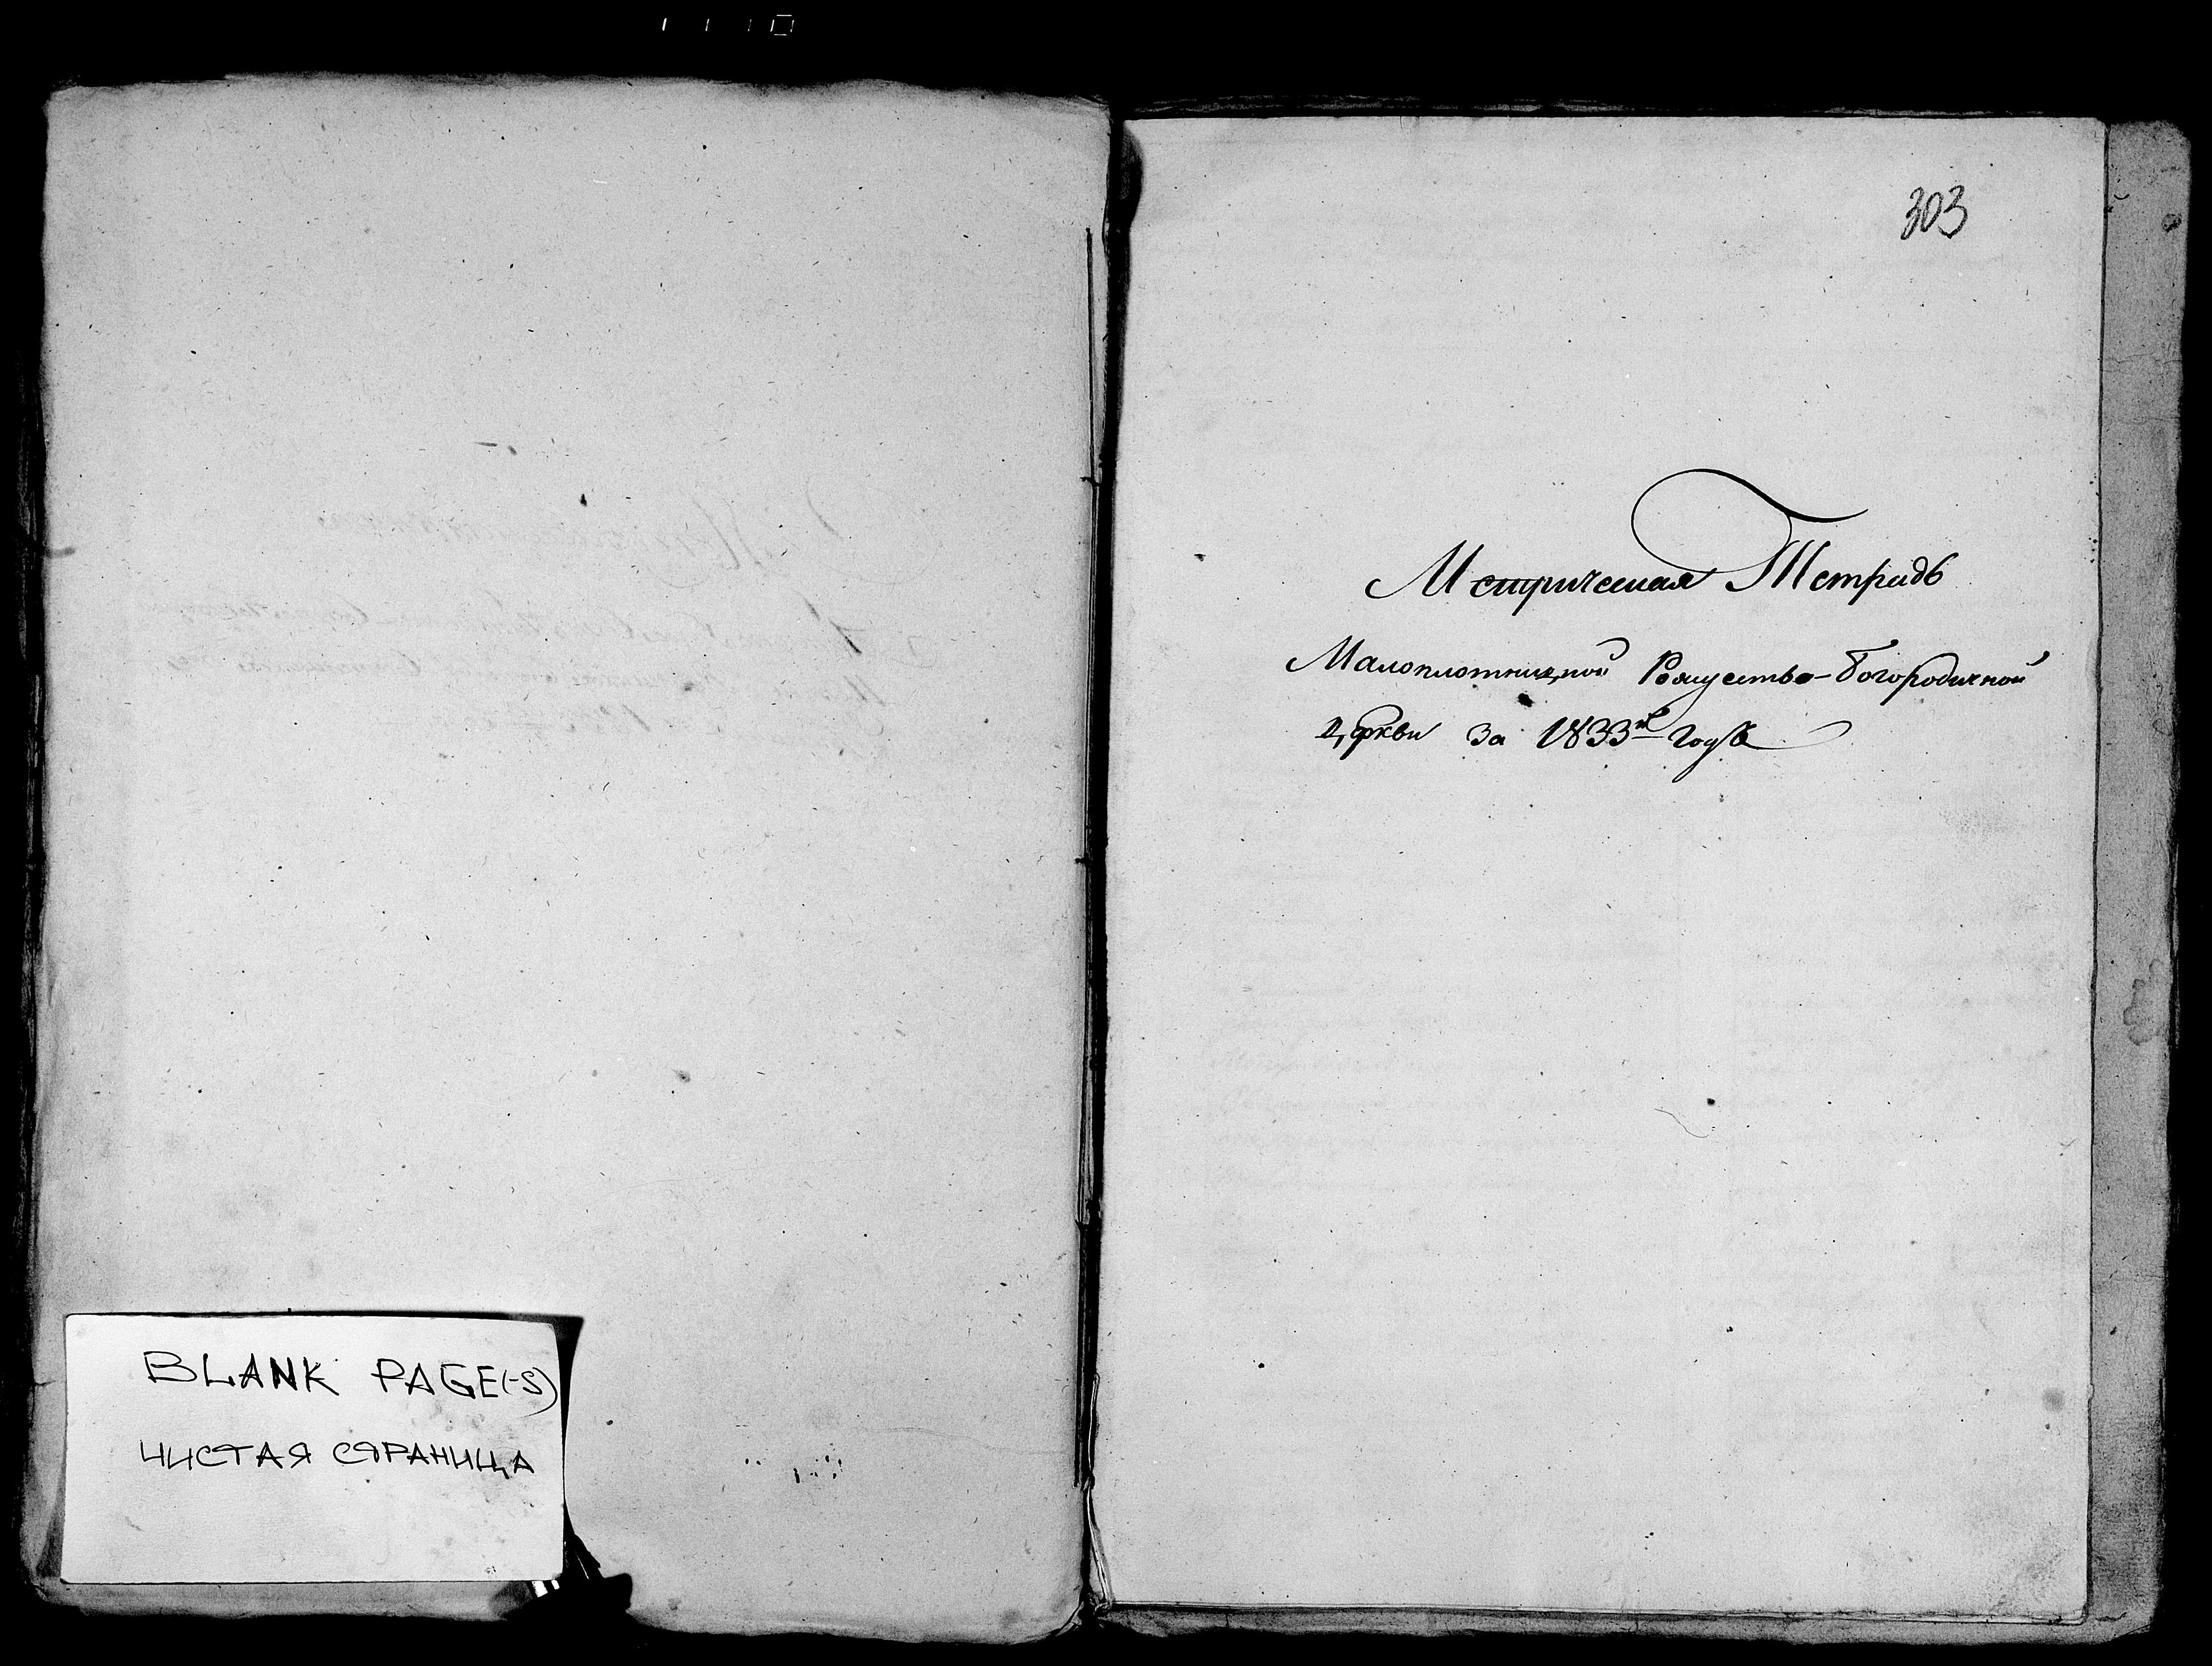 BLANK PAGE(-S)
ЧИСТАЯ СТРАНИЦА
303
Метрическая Тетрадь
Малоплотницкой Рождество-Богородичной
церкви за 1833й годъ